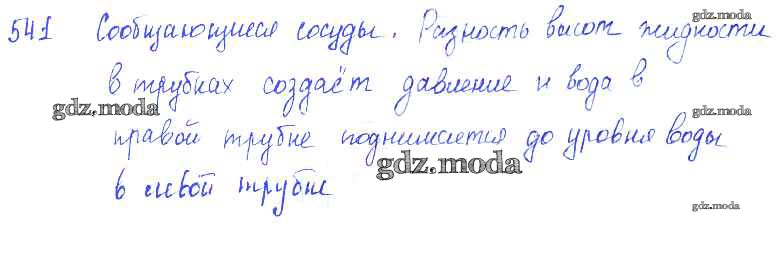 541 Сообщающиеся сосуды. Разность высот жидкости
в трубках создаёт давление и вода в
правой трубке поднимается до уровня воды
в левой трубке
gdz.moda
gdz.moda
gdz.moda
gdz.moda
gdz.moda